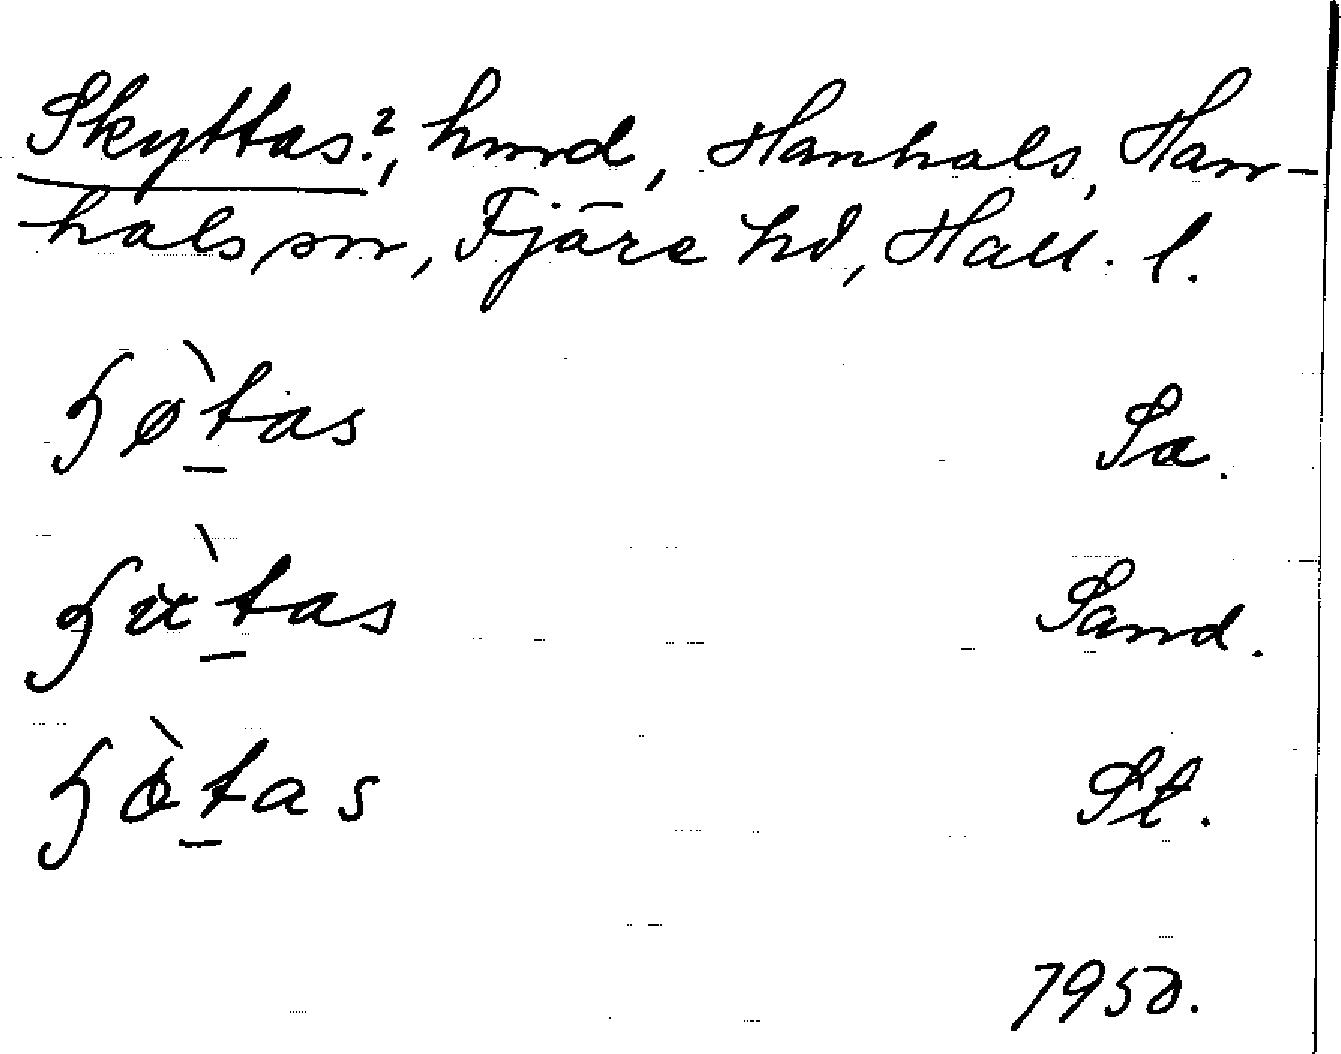 Skyttas?, hmd, Hanhals, Han-
hals sn, Fjäre hd, Hall. l.
ɧø̀tas Sa.
ɧùtas Sand.
ɧò̵tas St.
1950.